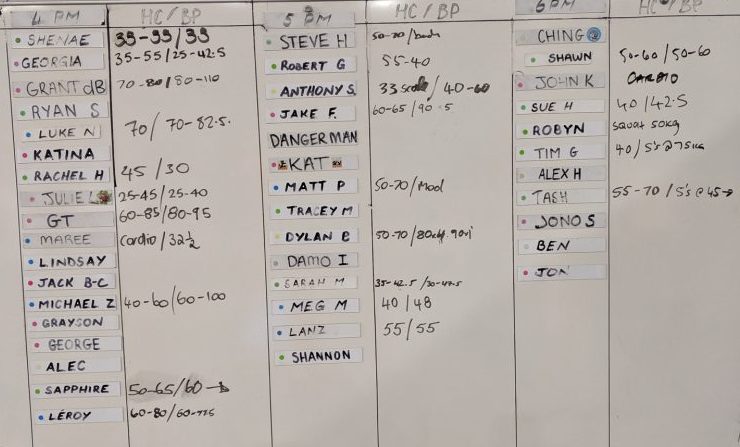 4 PM HC/BP
SHENAE 35-55/35
GEORGIA 35-55/25-42.5
GRANT dB 70-80/80-110
RYAN S
LUKE N 70/70-82.5.
KATINA
RACHEL H 45/30
JULIE L 25-45/25-40
GT 60-85/80-95
MAREE Cardio/32½
LINDSAY
JACK B-C
MICHAEL Z 40-60/60-100
GRAYSON
GEORGE
ALEC
SAPPHIRE 50-65/60→
LEROY 60-80/60-
5 PM HC/BP
STEVE H 50-70/
ROBERT G 55-40
ANTHONY S. 33 / 40-60
JAKE F. 60-65/90.5
DANGERMAN
KAT
MATT P 50-70/Mod
TRACEY M
DYLAN B 50-70/
DAMO I
SARAH M 35-42.5/30-47.5
MEG M 40/48
LANZ 55/55
SHANNON
6 PM HC/BP
CHING
SHAWN 50-60/50-60
JOHN K CARDIO
SUE H 40/42.5
ROBYN Squat 50kg
TIM G 40/5's@75kg
ALEX H
TASH 55-70/5's@45→
JONO S
BEN
JON